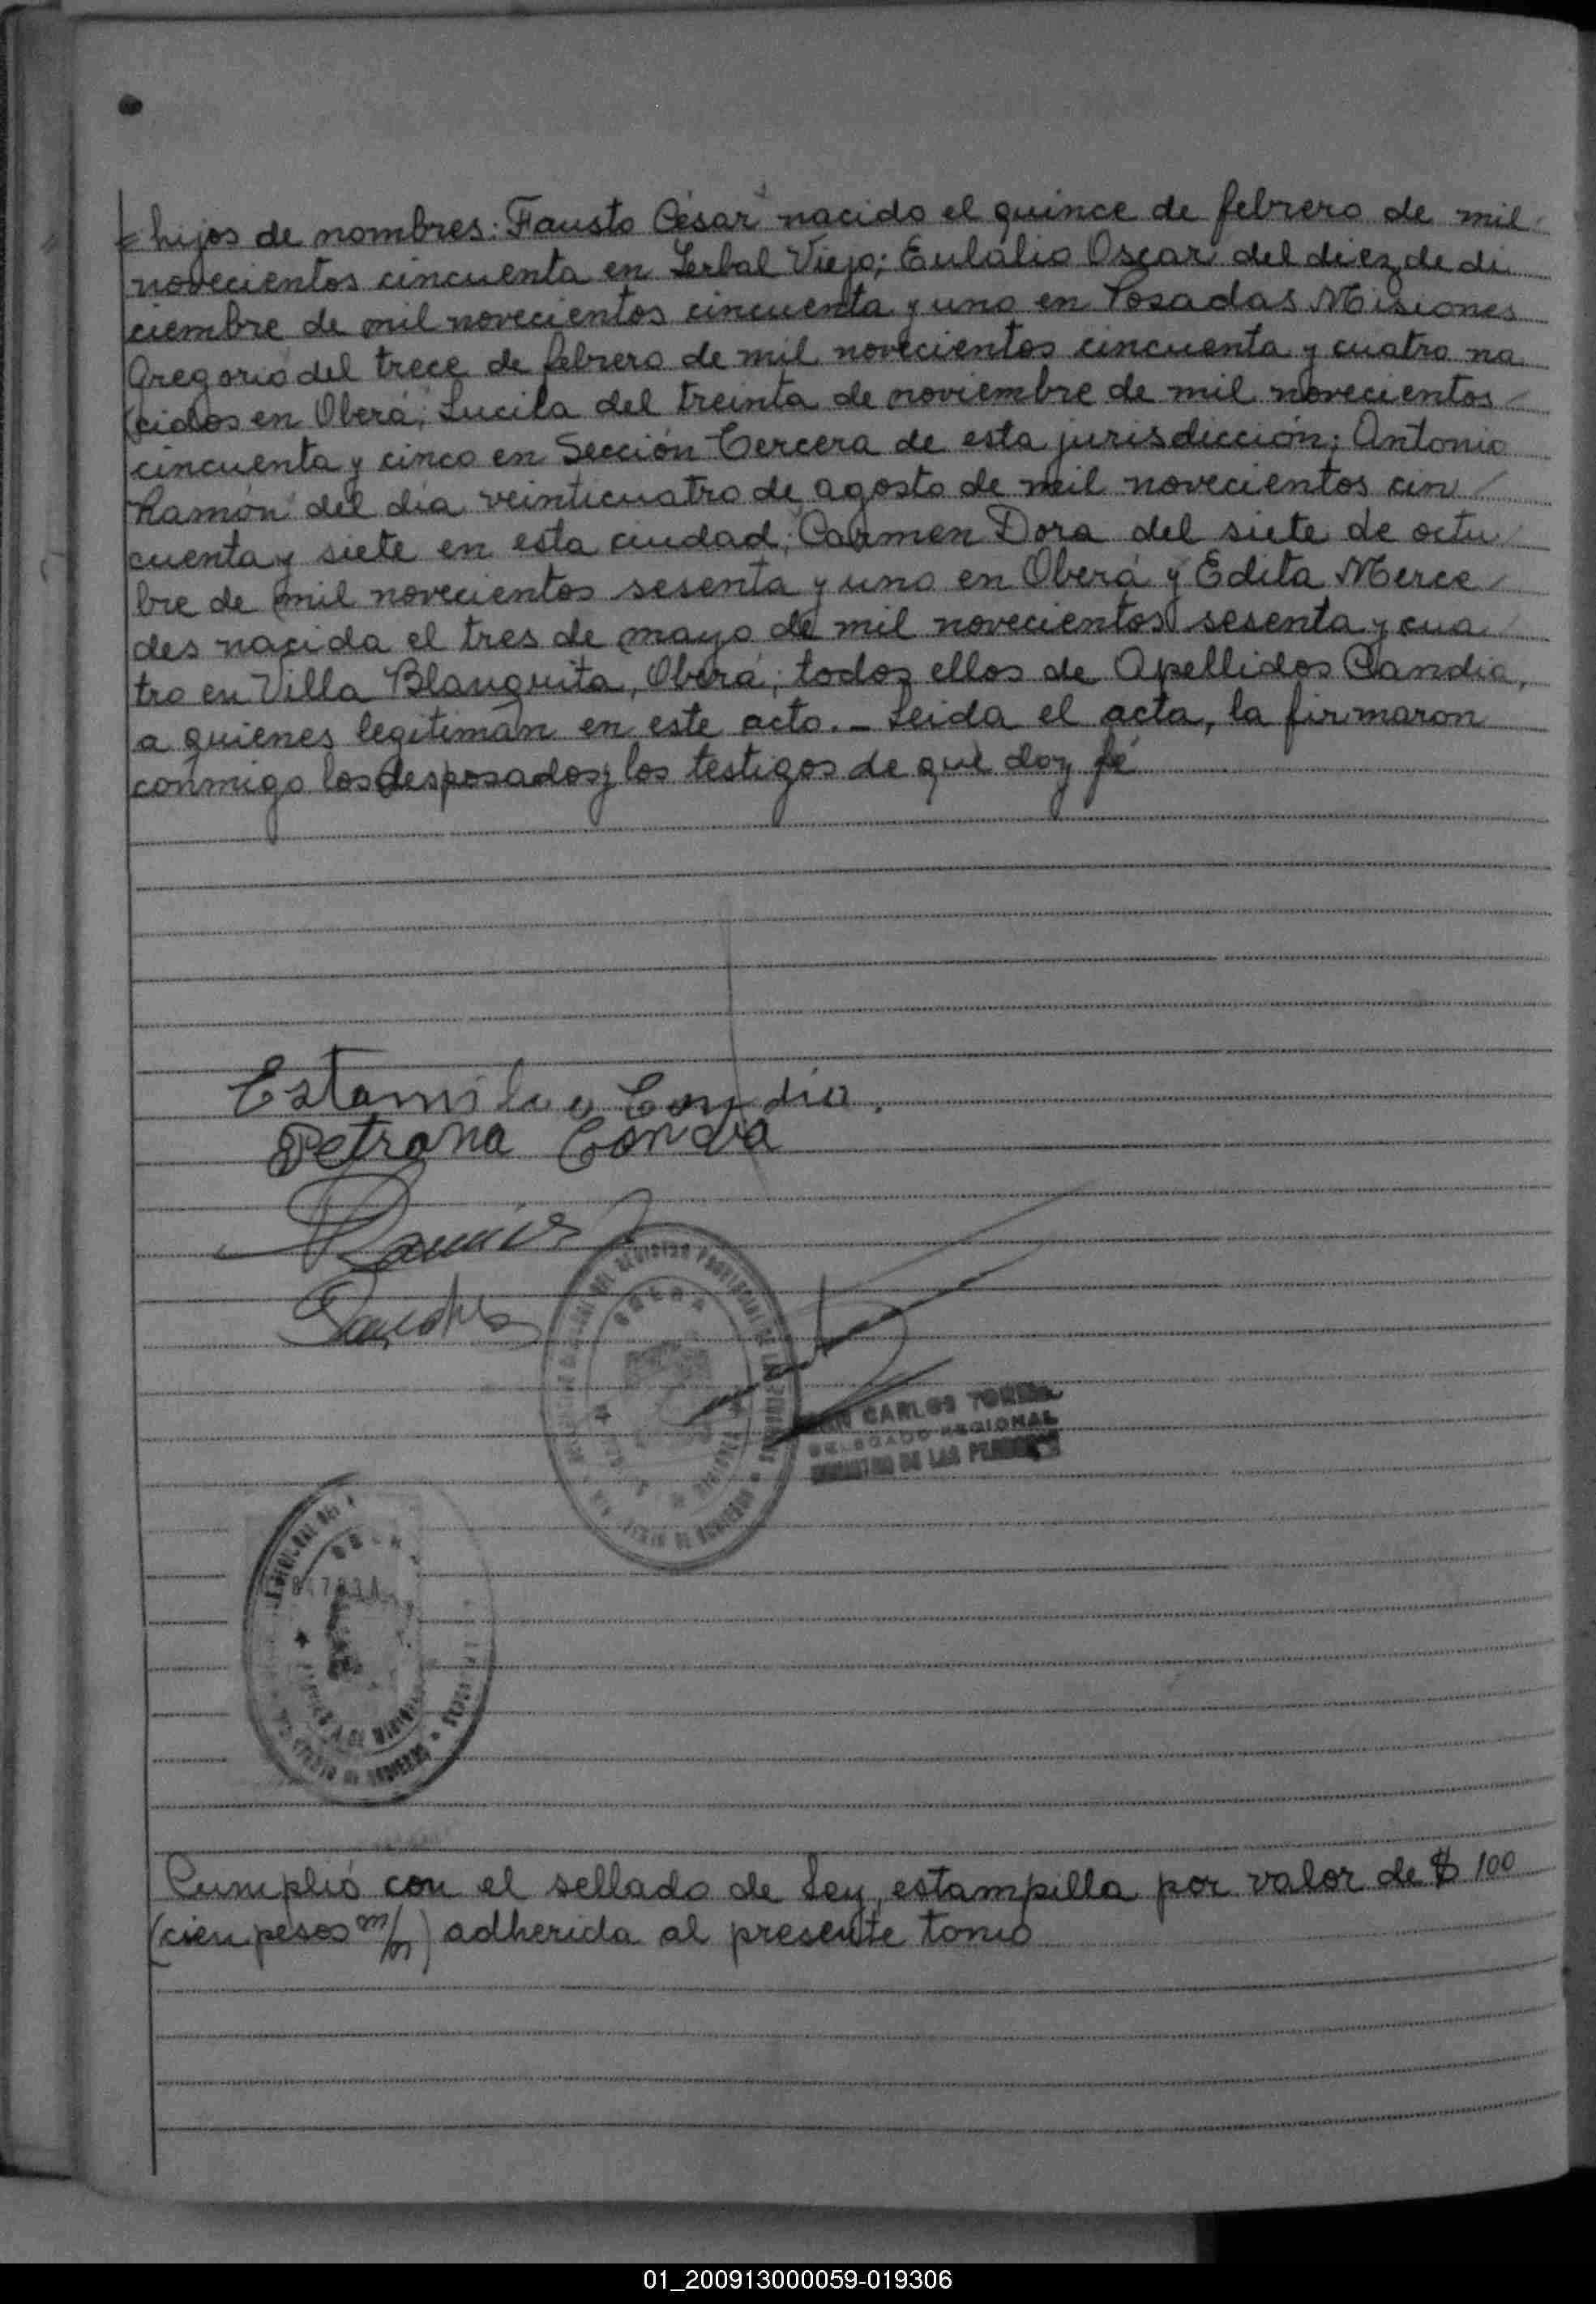 = hijos de nombres: Fausto César nacido el quince de febrero de mil
novecientos cincuenta en Yerbal Viejo; Eulalio Oscar del diez de di
ciembre de mil novecientos cincuenta y uno en Posadas Misiones
Gregorio del trece de febrero de mil novecientos cincuenta y cuatro na
cidos en Oberá; Lucila del treinta de noviembre de mil novecientos
cincuenta y cinco en Sección Tercera de esta jurisdicción; Antonio
Ramón del día veinticuatro de agosto de mil novecientos cin
cuenta y siete en esta ciudad; Carmen Dora del siete de octu
bre de mil novecientos sesenta y uno en Oberá y Edita Merce
des nacida el tres de mayo de mil novecientos sesenta y cua
tro en Villa Blanquita, Oberá; todos ellos de Apellidos Candia,
a quienes legitiman en este acto. _ Leida el acta, la firmaron
conmigo los desposados y los testigos de que doy fé
Petrona
OBERA
CARLOS
DELEGADO REGIONAL
DE LAS
Cumplió con el sellado de Ley, estampilla por valor de $ 100
(cien pesos m/n) adherida al presente tomo
01_200913000059-019306